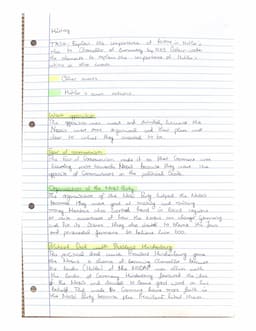 History
TASK: Explain the importance of factors in Hitler's
rise to Chancellor of Germany by 1933. Colour code
the elements to explain the importance of Hitler's
actions or other events.
Other events
Hitler's own actions
Weak opposition
The opposition was weak and divided, because the
Nazis were more organised and their plans were
clear to what they wanted to be.
Fear of communism
The fear of Communism made it so that Germans were
leaning more towards Nazis because they were the
opposite of Communism in the political scale.
Organisation of the Nazi Party
The organisation of the Nazi Party helped the Nazis
because they were good at making and raising
money. Members also worked hard in local regions
to raise awareness of how the Nazis can change Germany
and fix its issues. They also used to blame the Jews
and persuaded Germans to believe him too.
Political Deal with President Hindenburg
The political deal with President Hindenburg gave
the Nazis a chance of becoming Chancellor because
the leader (Hitler) of the NSDAP was often with
the leader of Germany. Hindenburg favoured the idea
of the Nazis and wanted to some good word on the
behalf. This made the Germans have more faith in
the Nazi Party because the President liked them.